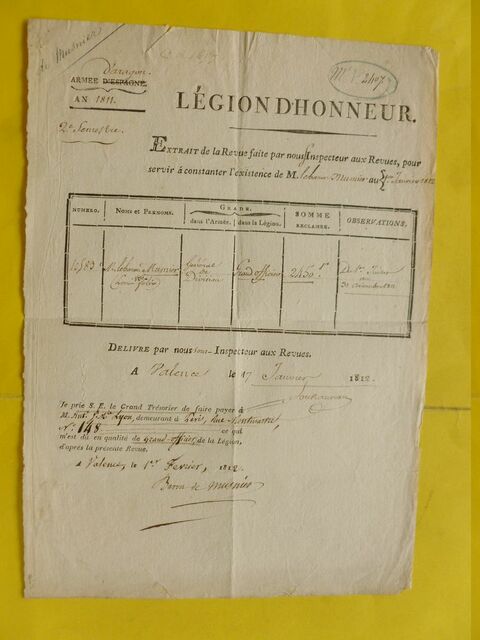 de Musnier
C 1617
d'aragon
ARMÉE D'ESPAGNE
AN 1811.
2e Semestre
No. 2407
LÉGION D'HONNEUR.
EXTRAIT de la Revue faite par nous Inspecteur aux Revues, pour
servir à constater l'existence de M. le baron Musnier au 1er Janvier 1812
NUMÉRO.
NOMS ET PRÉNOMS.
GRADE
dans l'Armée.
dans la Légion.
SOMME
RÉCLAMÉE.
OBSERVATIONS.
Mr. le baron Musnier
Louis félix
Général
de
Division
Grand officier
2450 f
Du 1er Juillet
au
31 décembre 1811
DÉLIVRÉ par nous sous-Inspecteur aux Revues.
A Valence le 17 Janvier 1812
Je prie S. E. le Grand Trésorier de faire payer à
M. Lyon, demeurant à Paris, Rue Montmartre
No. 148 ce qui
m'est dû en qualité de grand-officier de la Légion,
d'après la présente Revue.
A Valence, le 1er Février, 1812
Baron de Musnier